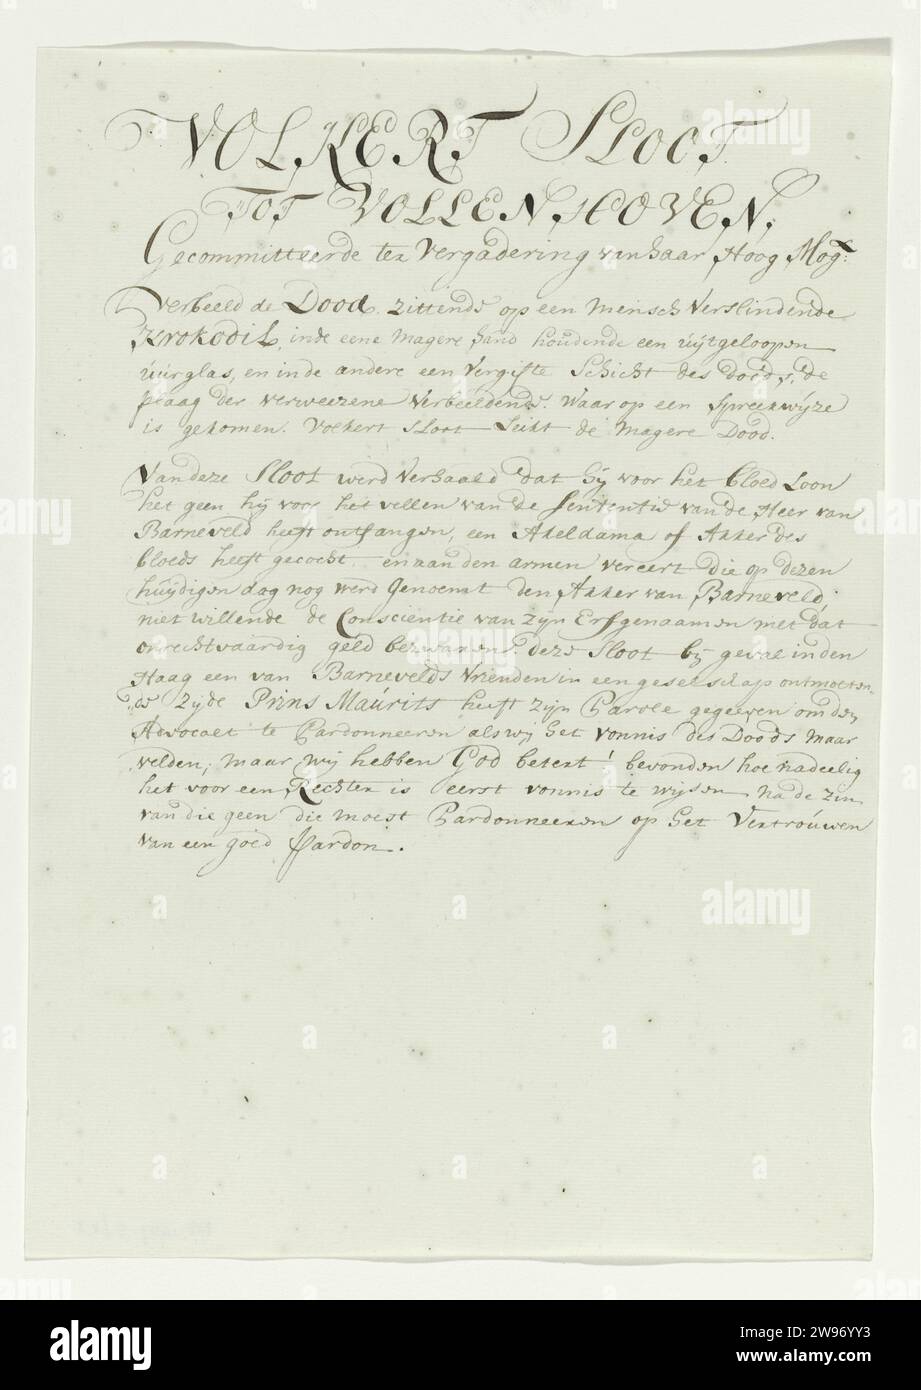 VOLKERT SLOOT
TOT VOLLENHOVEN,
Gecommitteerde ter Vergadering van haar Hoog Mog:
Verbeeld de Dood zittende op een Mensch Verslindende
Krokodil, inde eene Magere hand houdende een uijtgeloopen
uurglas, en inde andere een Vergifte Schicht des doods, de
plaag der verweezene Verbeeldende. Waar op een spreekwijze
is gekomen. Volkert Sloot Lückt de Magere Dood.
Van deze Sloot werd Verhaald dat hij voor het Bloed Loon
het geen hij voor het vellen van de Sententie van de Heer van
Barneveld heeft ontfangen, een Akeldama of Akker des
bloeds heeft gecocht en aan den armen vereert die op dezen
huijdigen dag nog werd Genoemt den Akker van Barneveld,
niet willende de Conscientie van zijn Erfgenaamen met dat
onrechtvaardig geld bezwaren, deze Sloot bij geval in den
Haag een van Barnevelds Vrienden in een geselschap ontmoeten-
de zijde Prins Maurits heeft zijn Parole gegeeven om den
Advocaet te Pardonneeren als wij het vonnis des Doods maar
velden, maar wij hebben God betert! bevonden hoe nadeelig
het voor een Rechter is eerst vonnis te wijsen na de zin
van die geen die moest Pardonneeren op het Vertrouwen
van een goed Pardon.
alamy
Image ID: 2W96YY3
www.alamy.com